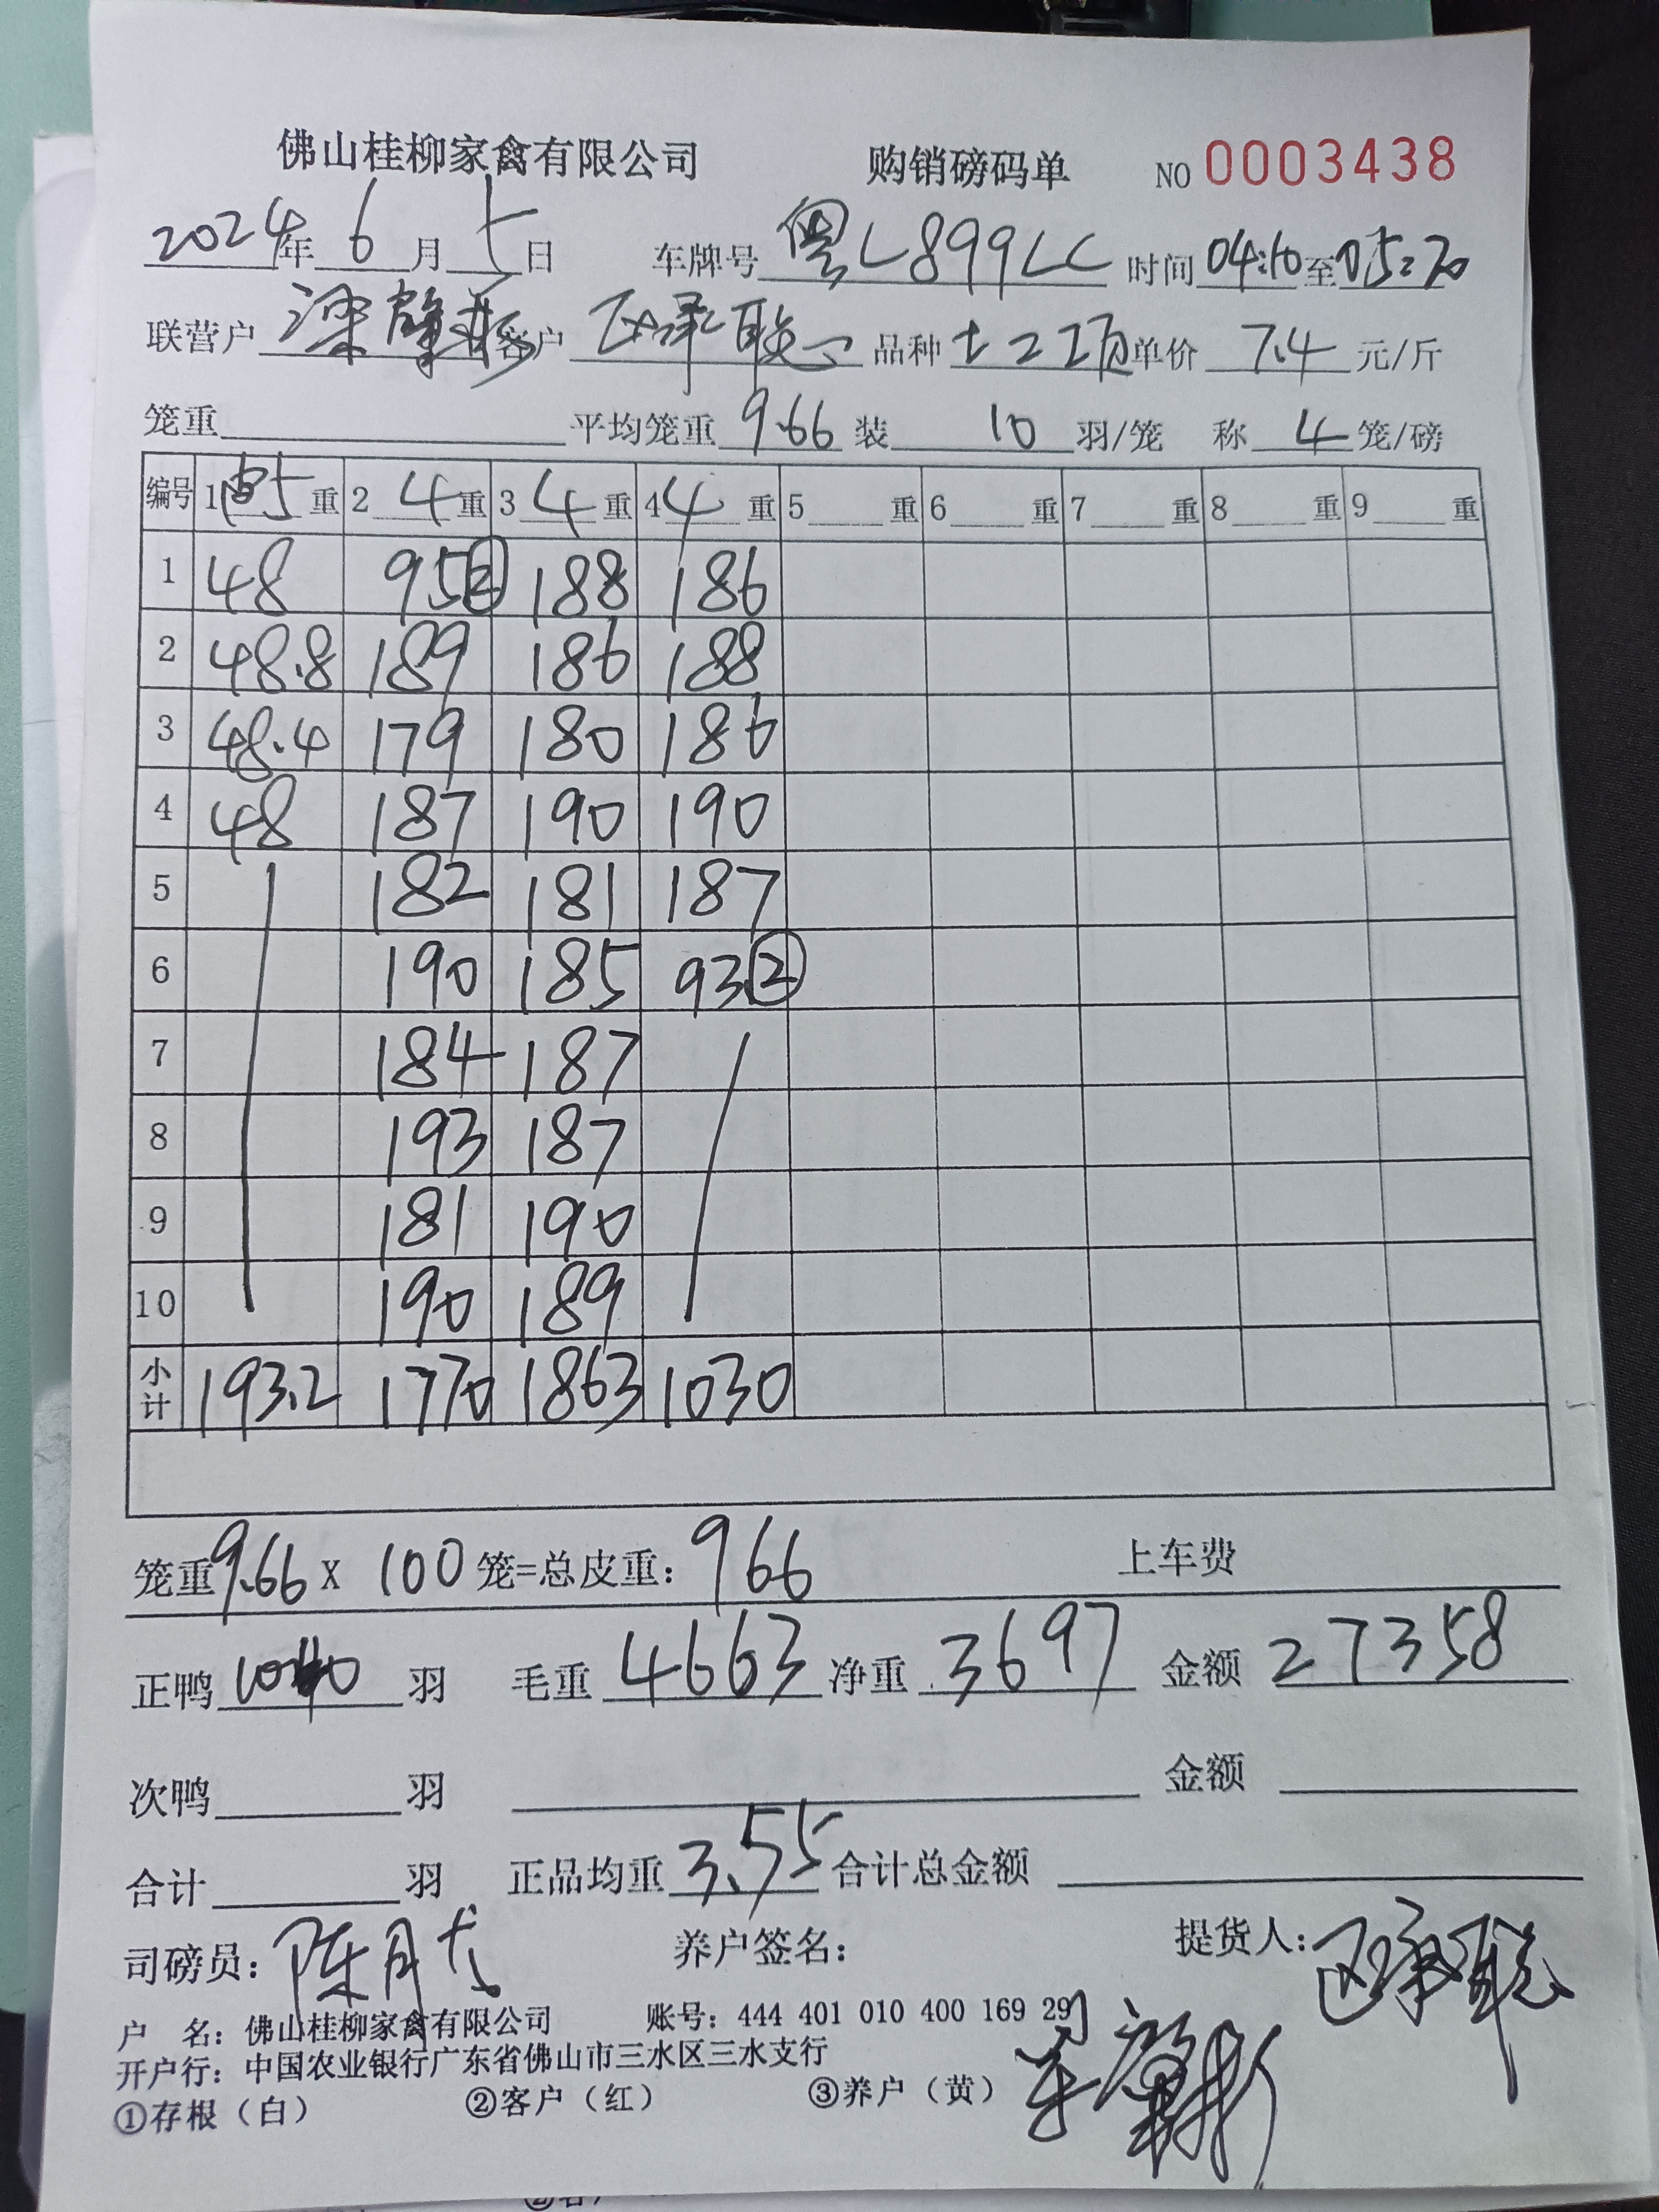 佛山桂柳家禽有限公司 购销磅码单 NO 0003438
2024年 6 月 5 日 车牌号 粤L899LC 时间 04:10 至 05:20
联营户 梁肇彬 客户 承联 品种 土2 单价 7.4 元/斤
笼重 平均笼重 9.66 装 10 羽/笼 称 4 笼/磅
编号 1 5 重 2 4 重 3 4 重 4 4 重 5 重 6 重 7 重 8 重 9 重
1 48 95② 188 186
2 48.8 189 186 188
3 48.4 179 180 186
4 48 187 190 190
5 182 181 187
6 190 185 93②
7 184 187
8 193 187
9 181 190
10 190 189
小计 193.2 1770 1863 1030
笼重 9.66 X 100 笼=总皮重: 966 上车费
正鸭 羽 毛重 4663 净重 3697 金额 27358
次鸭 羽 金额
合计 羽 正品均重 3.55 合计总金额
司磅员: 陈月 养户签名: 提货人:
户 名: 佛山桂柳家禽有限公司 账号: 444 401 010 400 169 29
开户行: 中国农业银行广东省佛山市三水区三水支行
①存根（白） ②客户（红） ③养户（黄）